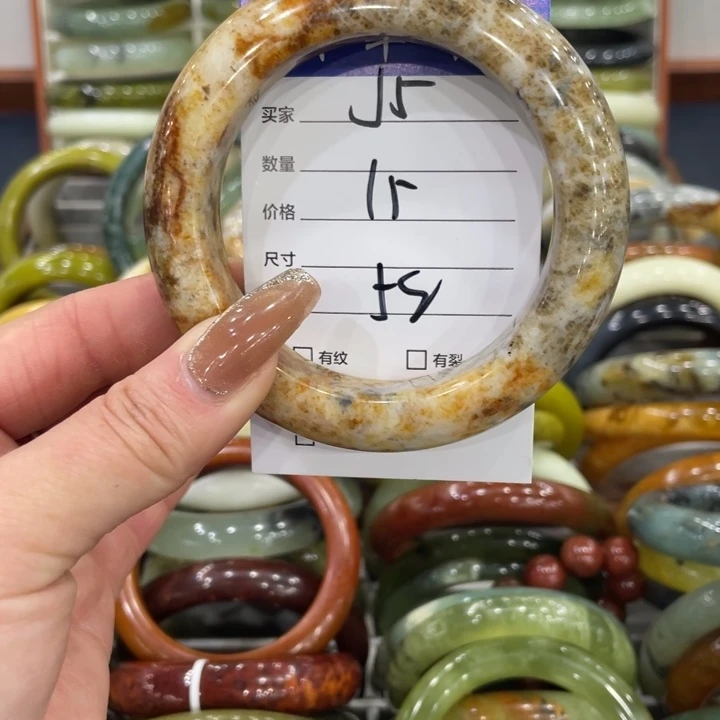 买家 J5
数量
15
价格
尺寸
54
有纹 有裂